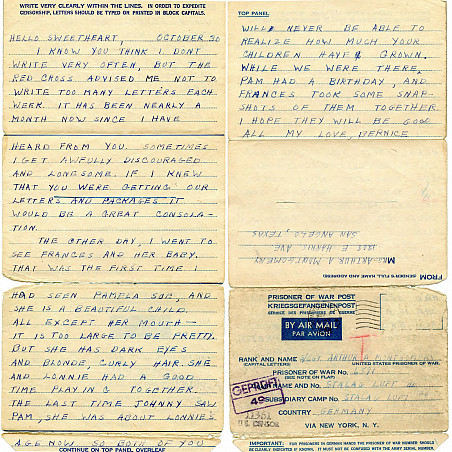 WRITE VERY CLEARLY WITHIN THE LINES. IN ORDER TO EXPEDITE
CENSORSHIP, LETTERS SHOULD BE TYPED OR PRINTED IN BLOCK CAPITALS.
HELLO SWEETHEART, OCTOBER 30
I KNOW YOU THINK I DON'T
WRITE VERY OFTEN, BUT THE
RED CROSS ADVISED ME NOT TO
WRITE TOO MANY LETTERS EACH
WEEK. IT HAS BEEN NEARLY A
MONTH NOW SINCE I HAVE
HEARD FROM YOU. SOMETIMES
I GET AWFULLY DISCOURAGED
AND LONESOME. IF I KNEW
THAT YOU WERE GETTING OUR
LETTERS AND PACKAGES IT
WOULD BE A GREAT CONSOLA-
TION.
THE OTHER DAY, I WENT TO
SEE FRANCES AND HER BABY.
THAT WAS THE FIRST TIME I
HAD SEEN PAMELA SUE, AND
SHE IS A BEAUTIFUL CHILD.
ALL EXCEPT HER MOUTH—
IT IS TOO LARGE TO BE PRETTY.
BUT SHE HAS DARK EYES
AND BLONDE, CURLY HAIR. SHE
AND LONNIE HAD A GOOD
TIME PLAYING TOGETHER.
THE LAST TIME JOHNNY SAW
PAM, SHE WAS ABOUT LONNIE'S
AGE NOW SO BOTH OF YOU
CONTINUE ON TOP PANEL OVERLEAF
TOP PANEL
WILL NEVER BE ABLE TO
REALIZE HOW MUCH YOUR
CHILDREN HAVE GROWN.
WHILE WE WERE THERE,
PAM HAD A BIRTHDAY, AND
FRANCES TOOK SOME SNAP-
SHOTS OF THEM TOGETHER
I HOPE THEY WILL BE GOOD
ALL MY LOVE, BERNICE
FROM SENDER'S FULL NAME AND ADDRESS
MRS. ARTHUR A MONTGOMERY
E HARRIS AVE
SAN ANGELO, TEXAS
PRISONER OF WAR POST
KRIEGSGEFANGENENPOST
SERVICE DES PRISONNIERS DE GUERRE
BY AIR MAIL
PAR AVION
RANK AND NAME ARTHUR A MONTGOMERY
(CAPITAL LETTERS) UNITED STATES PRISONER OF WAR.
PRISONER OF WAR No.
(SEE NOTE ON FLAP)
NAME AND No. STALAG LUFT
SUBSIDIARY CAMP STALAG LUFT
COUNTRY GERMANY
VIA NEW YORK, N. Y.
GEPRÜFT
49
U.S. CENSOR
IMPORTANT: FOR PRISONERS IN GERMAN HANDS THE PRISONER OF WAR NUMBER SHOULD
BE CLEARLY INDICATED IF KNOWN. IT MUST NOT BE CONFUSED WITH THE ARMY SERIAL NUMBER.